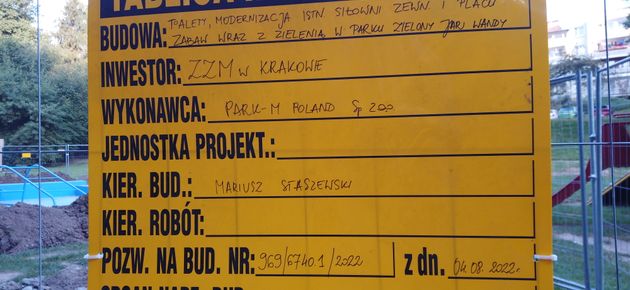 TABLICA
BUDOWA: TOALETY, MODERNIZACJA ISTN. SIŁOWNI ZEWN. I PLACU
ZABAW WRAZ Z ZIELENIĄ W PARKU ZIELONY JAR WANDY
INWESTOR: ZZM W KRAKOWIE
WYKONAWCA: PARK-M POLAND Sp. z o.o.
JEDNOSTKA PROJEKT.:
KIER. BUD.: MARIUSZ STASZEWSKI
KIER. ROBÓT:
POZW. NA BUD. NR: 969/6740.1/2022 z dn. 04.08.2022r.